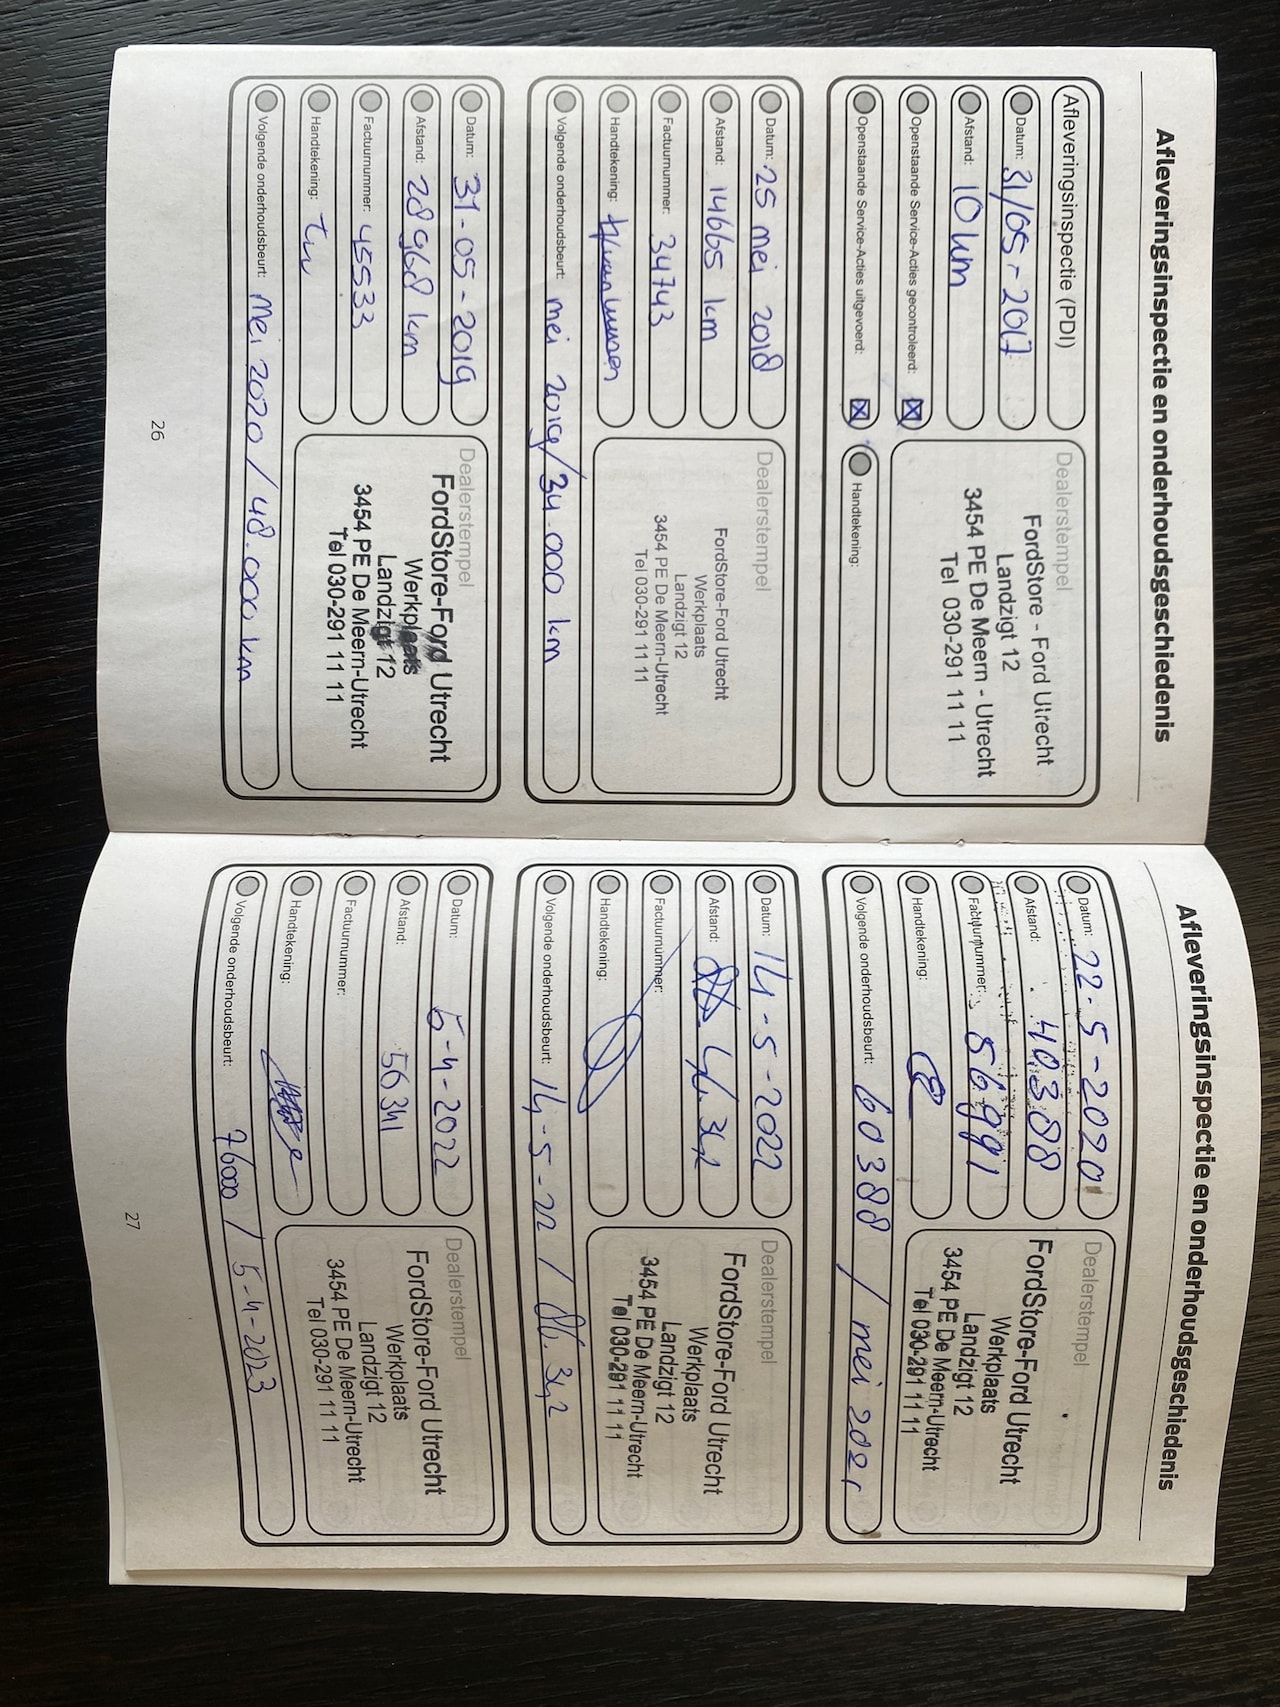 Afleveringsinspectie en onderhoudsgeschiedenis
Afleveringsinspectie (PDI)
Datum: 31/05-2017
Afstand: 10 km
Openstaande Service-Acties gecontroleerd: ☒
Openstaande Service-Acties uitgevoerd: ☒
Dealerstempel
FordStore - Ford Utrecht
Landzigt 12
3454 PE De Meern - Utrecht
Tel 030-291 11 11
Handtekening:
Datum: 25 mei 2018
Afstand: 14665 km
Factuurnummer: 34743
Handtekening:
Dealerstempel
FordStore-Ford Utrecht
Werkplaats
Landzigt 12
3454 PE De Meern-Utrecht
Tel 030-291 11 11
Volgende onderhoudsbeurt: mei 2019/34.000 km
Datum: 31-05-2019
Afstand: 28968 km
Factuurnummer: 45533
Handtekening:
Dealerstempel
FordStore-Ford Utrecht
Werkplaats
Landzigt 12
3454 PE De Meern-Utrecht
Tel 030-291 11 11
Volgende onderhoudsbeurt: mei 2020/48.000 km
26
Afleveringsinspectie en onderhoudsgeschiedenis
Datum: 22-5-2020
Afstand: 40388
Factuurnummer: 56991
Handtekening:
Dealerstempel
FordStore-Ford Utrecht
Werkplaats
Landzigt 12
3454 PE De Meern-Utrecht
Tel 030-291 11 11
Volgende onderhoudsbeurt: 60388 / mei 2021
Datum: 14-5-2022
Afstand:
Factuurnummer:
Handtekening:
Dealerstempel
FordStore-Ford Utrecht
Werkplaats
Landzigt 12
3454 PE De Meern-Utrecht
Tel 030-291 11 11
Volgende onderhoudsbeurt: 14-5-22 /
Datum: 5-4-2022
Afstand: 56341
Factuurnummer:
Handtekening:
Dealerstempel
FordStore-Ford Utrecht
Werkplaats
Landzigt 12
3454 PE De Meern-Utrecht
Tel 030-291 11 11
Volgende onderhoudsbeurt: 76000 / 5-4-2023
27